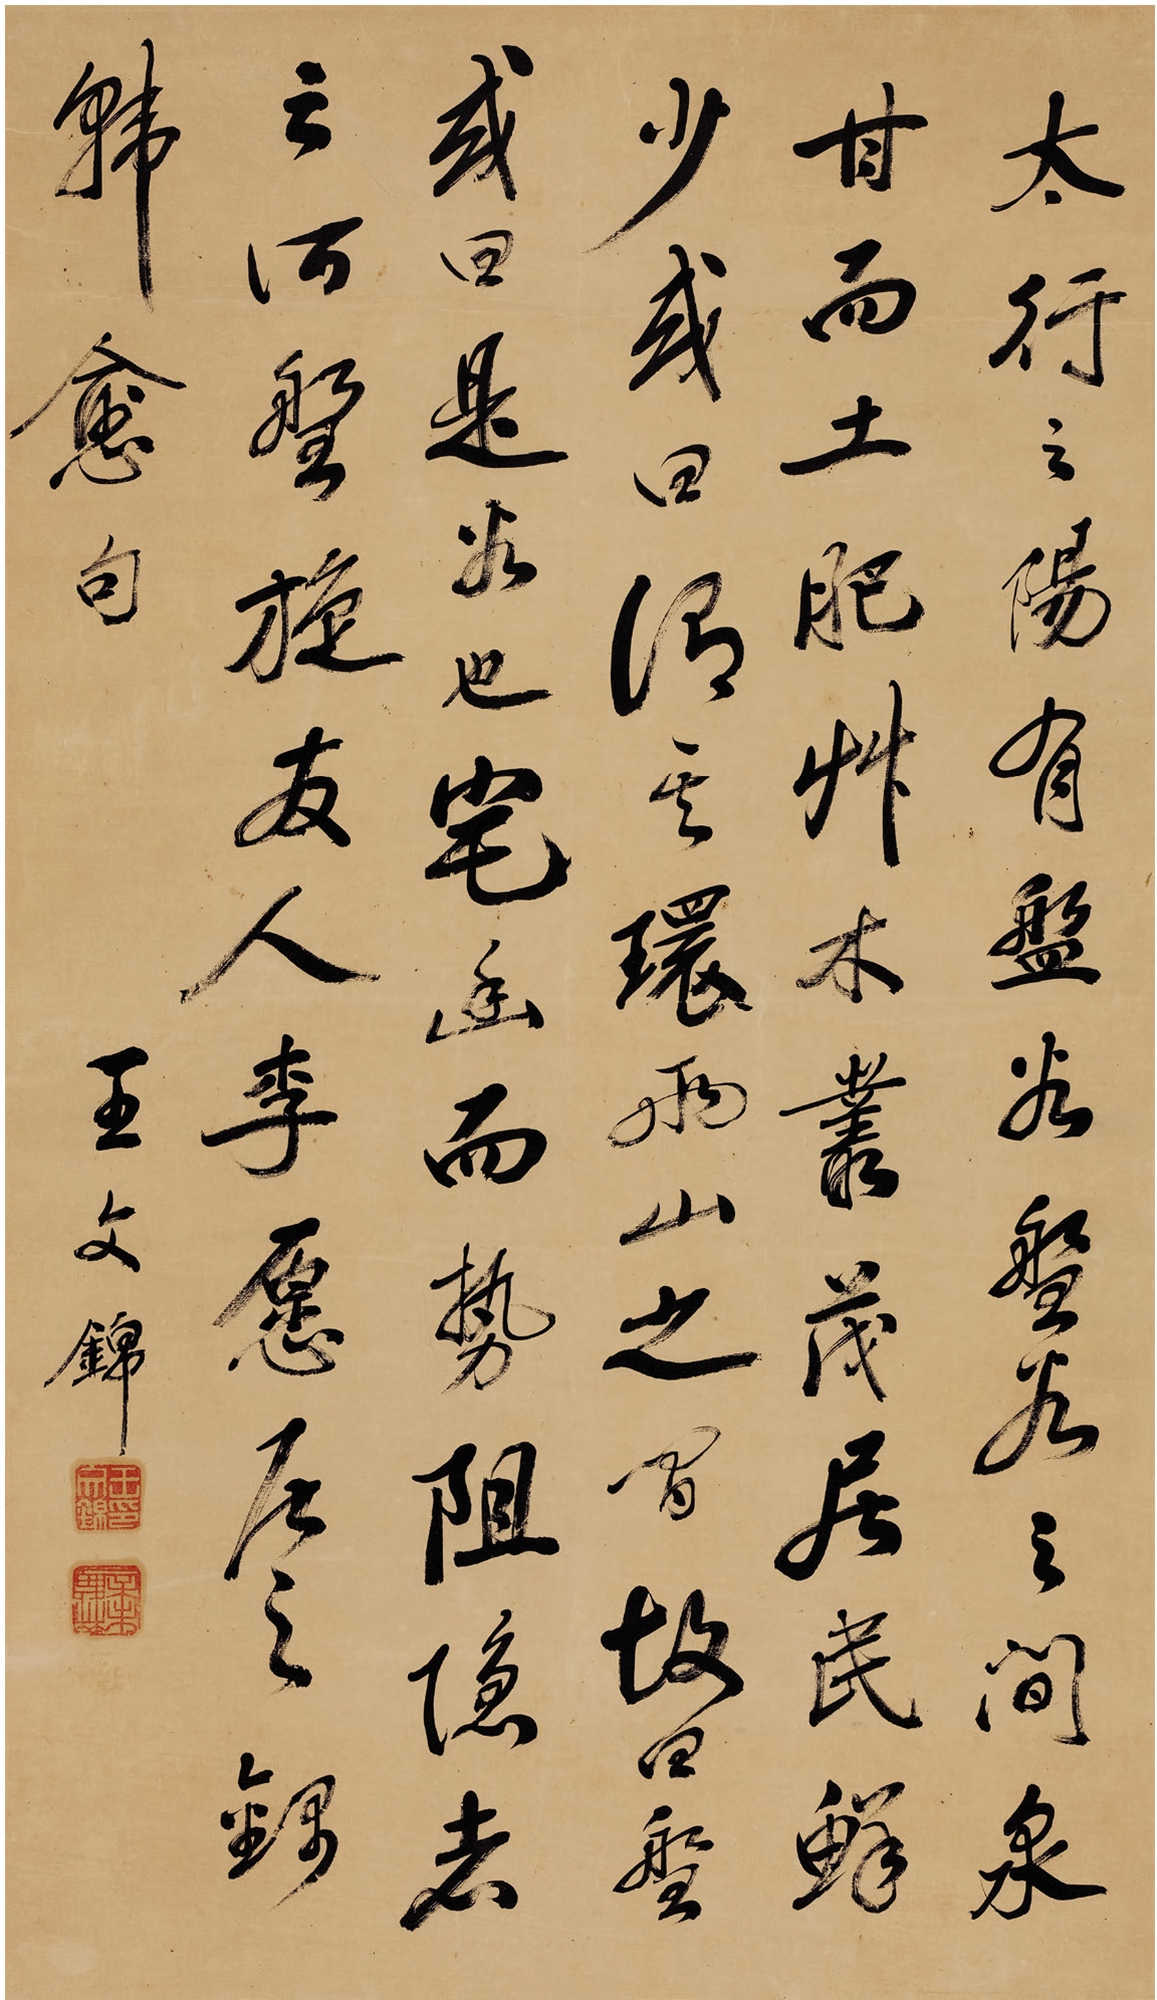 太行之陽有盤谷盤谷之間泉
甘而土肥艸木叢茂居民鮮
少或曰謂其環兩山之間故曰盤
或曰是谷也宅幽而勢阻隱者
之所盤旋友人李愿居之錄
韓愈句
王文錦
王印文錦